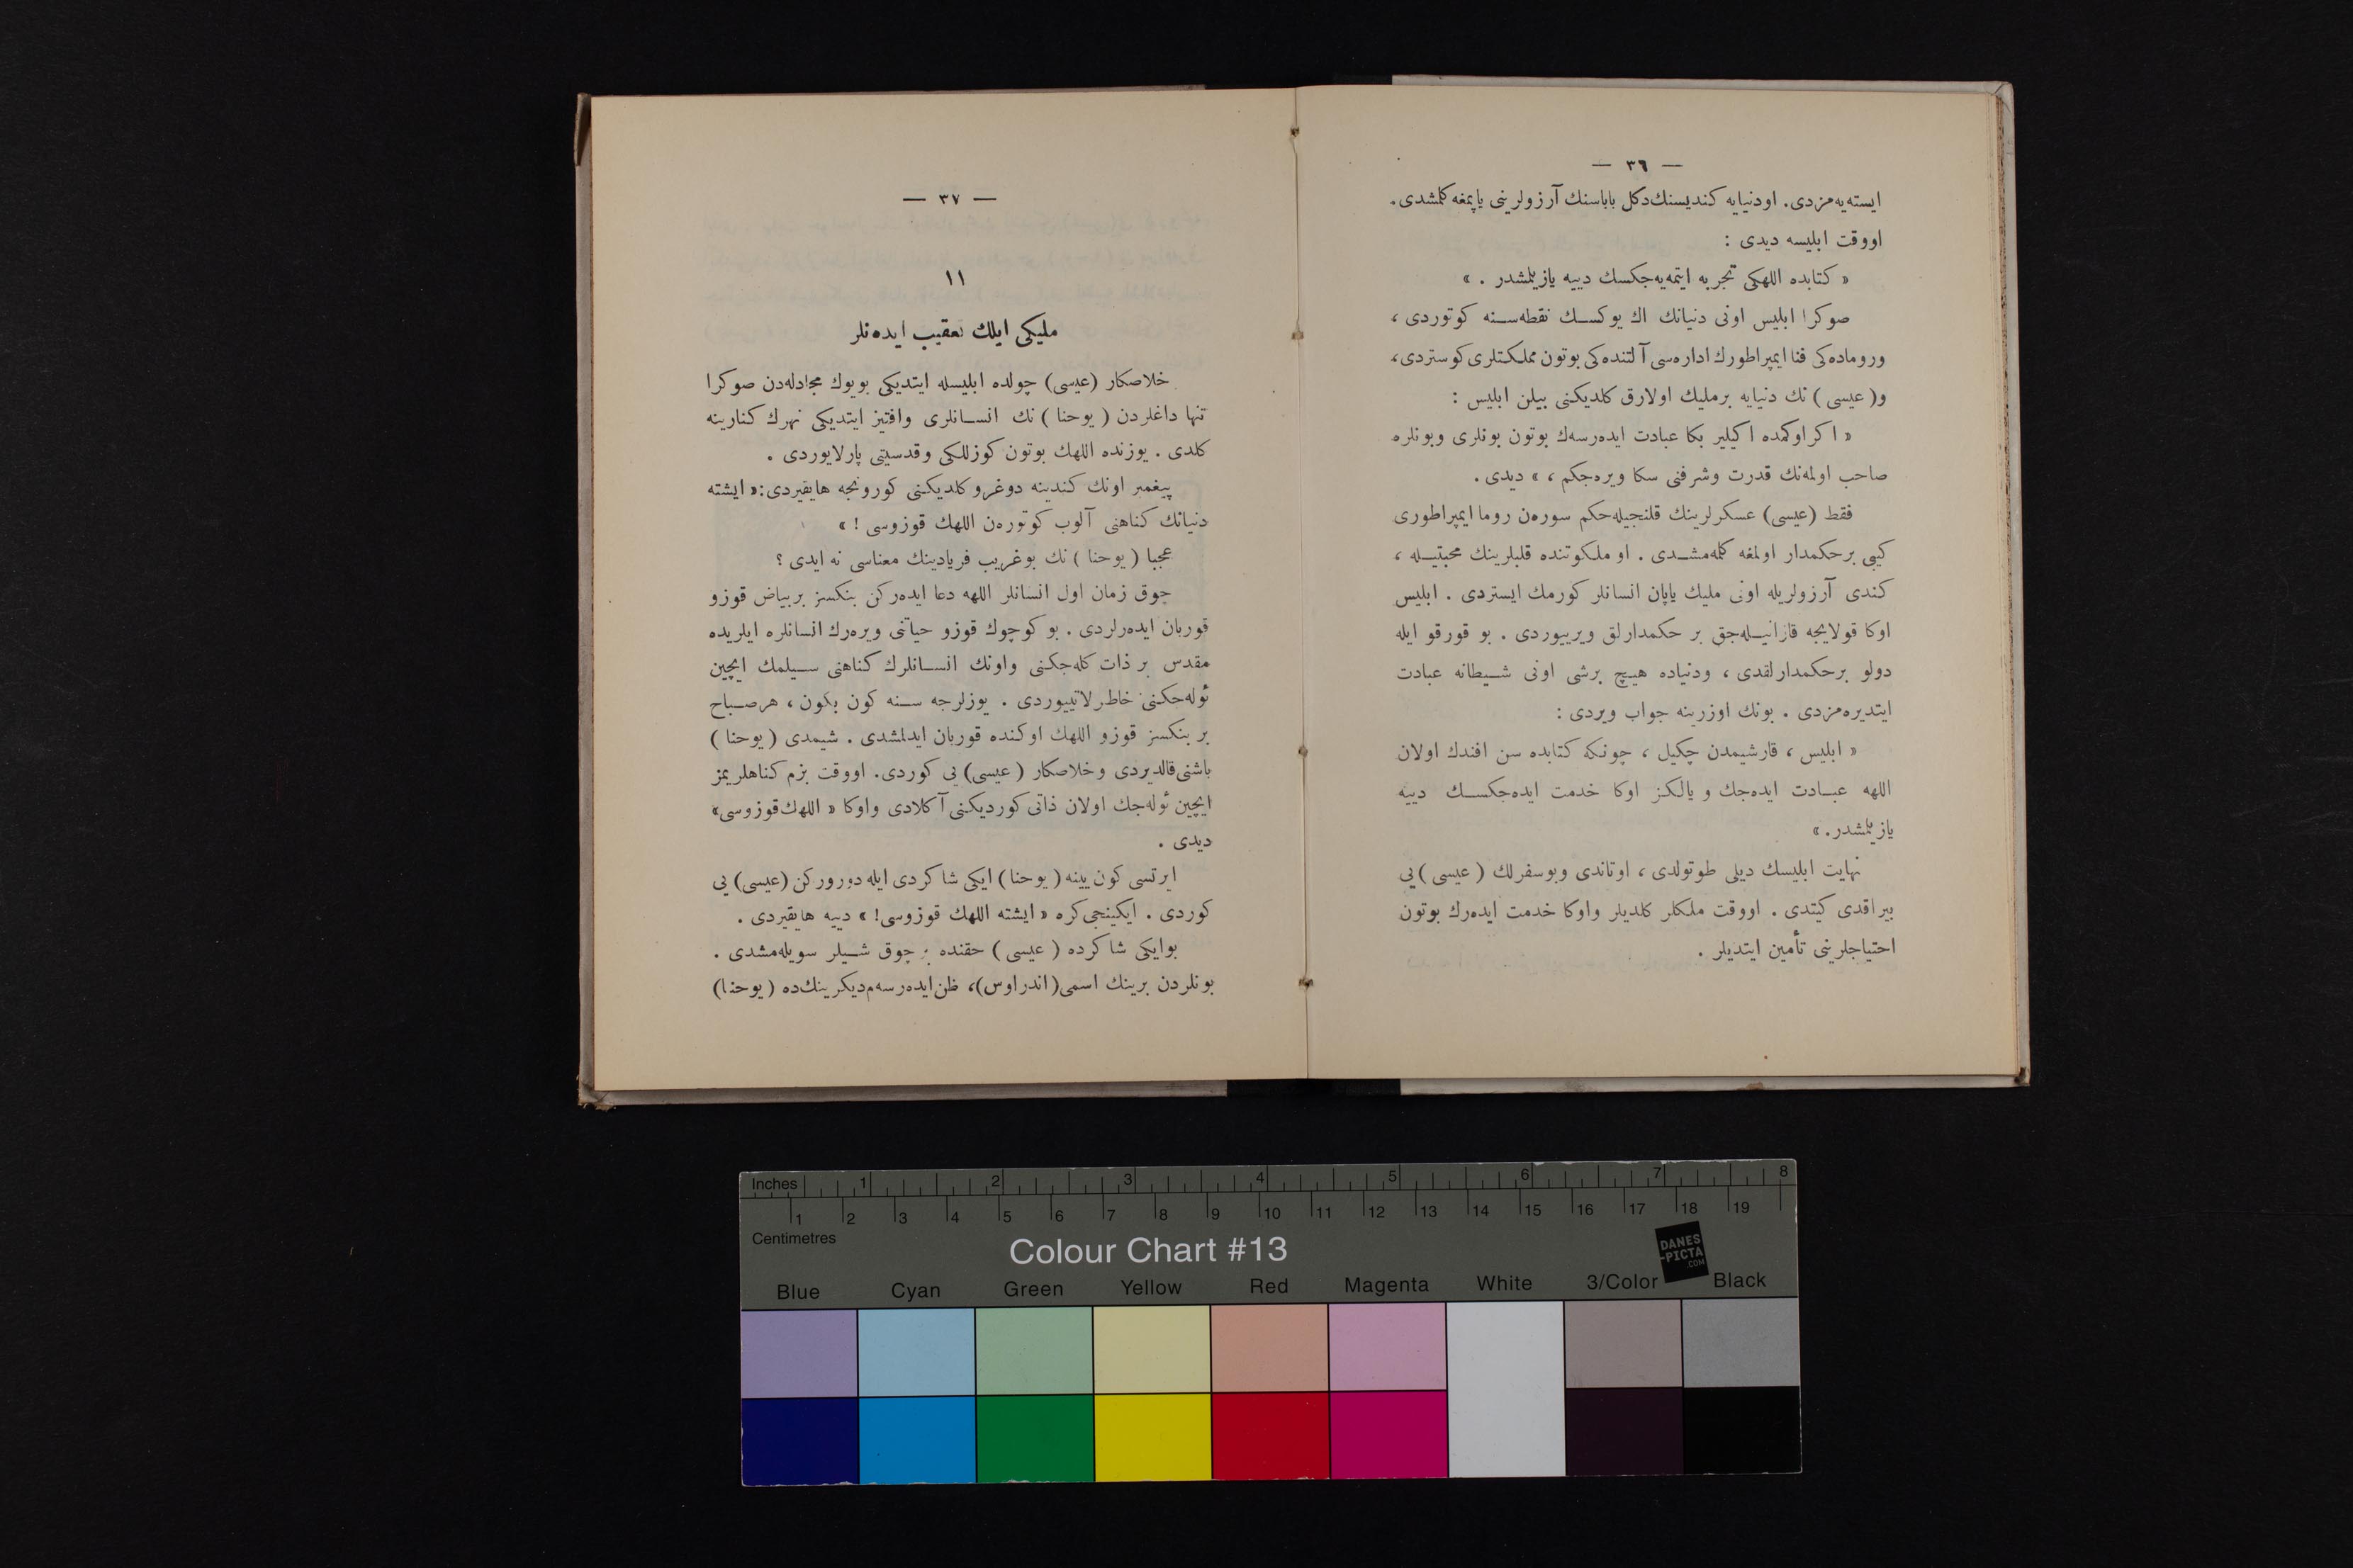 — ٣٦ —
ایسته‌یه‌مزدی. اودنیایه کندیسنك‌دكل باباسنك آرزولرینی یاپمغه كلمشدی.
اووقت ابلیسه دیدی :
« كتابده اللهكی تجربه ایتمه‌یه‌جكسك دییه یازیلمشدر . »
صوكرا ابلیس اونی دنیانك اك یوكسك نقطه‌سنه كوتوردی ،
وروماده‌كی فنا ایمپراطورك اداره‌سی آلتنده‌كی بوتون مملكتلری كوستردی،
و( عیسی ) نك دنیایه برملیك اولارق كلدیكنی بیلن ابلیس :
« اكر اوكمده اكیلیر بكا عبادت ایده‌رسه‌ك بوتون بونلری وبونلره
صاحب اولمه‌نك قدرت وشرفنی سكا ویره‌جكم ، » دیدی .
فقط (عیسی) عسكرلرینك قلنجیله‌حكم سوره‌ن روما ایمپراطوری
كیبی برحكمدار اولمغه كلمه‌مشدی . او ملكوتنده قلبلرینك محبتیله ،
كندی آرزولریله اونی ملیك یاپان انسانلر كورمك ایستردی . ابلیس
اوكا قولایجه قازانیله‌جق بر حكمدارلق ویرییوردی . بو قورقو ایله
دولو برحكمدارلقدی ، ودنیاده هیچ برشی اونی شیطانه عبادت
ایتدیره‌مزدی . بونك اوزرینه جواب ویردی :
« ابلیس ، قارشیمدن چكیل ، چونكه كتابده سن افندك اولان
اللهه عبادت ایده‌جك و یالكز اوكا خدمت ایده‌جكسك دییه
یازیلمشدر. »
نهایت ابلیسك دیلی طوتولدی ، اوتاندی وبوسفرلك ( عیسی ) یی
بیراقدی كیتدی . اووقت ملكلر كلدیلر واوكا خدمت ایده‌رك بوتون
احتیاجلرینی تأمین ایتدیلر .
— ٣٧ —
١١
ملیكی ایلك تعقیب ایده‌نلر
خلاصكار (عیسی) چولده ابلیسله ایتدیكی بویوك مجادله‌دن صوكرا
تنها داغلردن ( یوحنا ) نك انسانلری وافتیز ایتدیكی نهرك كنارینه
كلدی . یوزنده اللهك بوتون كوزللكی وقدسیتی پارلایوردی .
پیغمبر اونك كندینه دوغرو كلدیكنی كورونجه هایقیردی:« ایشته
دنیانك كناهنی آلوب كوتوره‌ن اللهك قوزوسی ! »
عجبا ( یوحنا ) نك بوغریب فریادینك معناسی نه ایدی ؟
چوق زمان اول انسانلر اللهه دعا ایده‌ركن بنكسز بربیاض قوزو
قوربان ایده‌رلردی . بو كوچوك قوزو حیاتنی ویره‌رك انسانلره ایلریده
مقدس بر ذات كله‌جكنی واونك انسانلرك كناهنی سیلمك ایچین
ئوله‌جكنی خاطرلاتییوردی . یوزلرجه سنه كون بكون ، هرصباح
بر بنكسز قوزو اللهك اوكنده قوربان ایدلمشدی . شیمدی ( یوحنا )
باشنی قالدیردی وخلاصكار ( عیسی) یی كوردی. اووقت بزم كناهلریمز
ایچین ئوله‌جك اولان ذاتی كوردیكنی آكلادی واوكا « اللهك قوزوسی»
دیدی .
ایرتسی كون یینه ( یوحنا ) ایكی شاكردی ایله دوروركن (عیسی) یی
كوردی . ایكینجی كره « ایشته اللهك قوزوسی! » دییه هایقیردی .
بوایكی شاكرده ( عیسی ) حقنده چوق شیلر سویله‌مشدی .
بونلردن برینك اسمی( اندراوس)، ظن ایده‌رسه‌م‌دیكرینك‌ده ( یوحنا)
Inches 1 2 3 4 5 6 7 8
1 2 3 4 5 6 7 8 9 10 11 12 13 14 15 16 17 18 19
Centimetres
Colour Chart #13
DANES
-PICTA
.COM
Blue Cyan Green Yellow Red Magenta White 3/Color Black